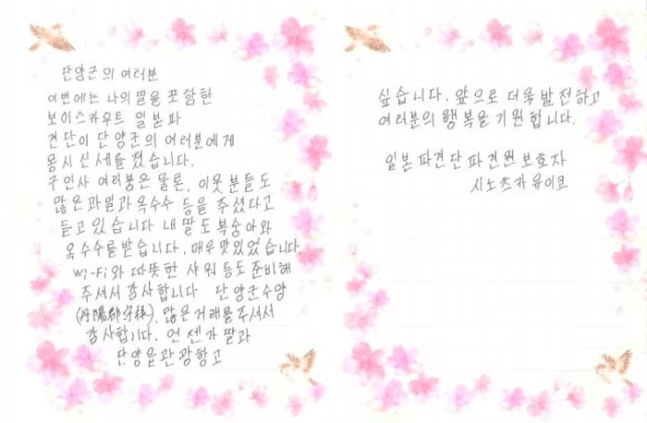 단양군의 여러분
이번에는 나의 딸을 포함한
보이스카우트 일본파
견단이 단양군의 여러분에게
몹시 신세를 졌습니다.
구인사 여러분은 물론, 이웃분들도
많은 과일과 옥수수 등을 주셨다고
듣고 있습니다 내 딸도 복숭아와
옥수수를 받습니다, 매우 맛있었습니다.
Wi-Fi와 따뜻한 샤워 등도 준비해
주셔서 감사합니다 단양군수양
(丹陽郡守様), 많은 거래를 주셔서
감사합니다. 언젠가 딸과
단양을 관광하고
싶습니다. 앞으로 더욱 발전하고
여러분의 행복을 기원합니다.
일본 파견단 파견원 보호자
시노츠카 유이코